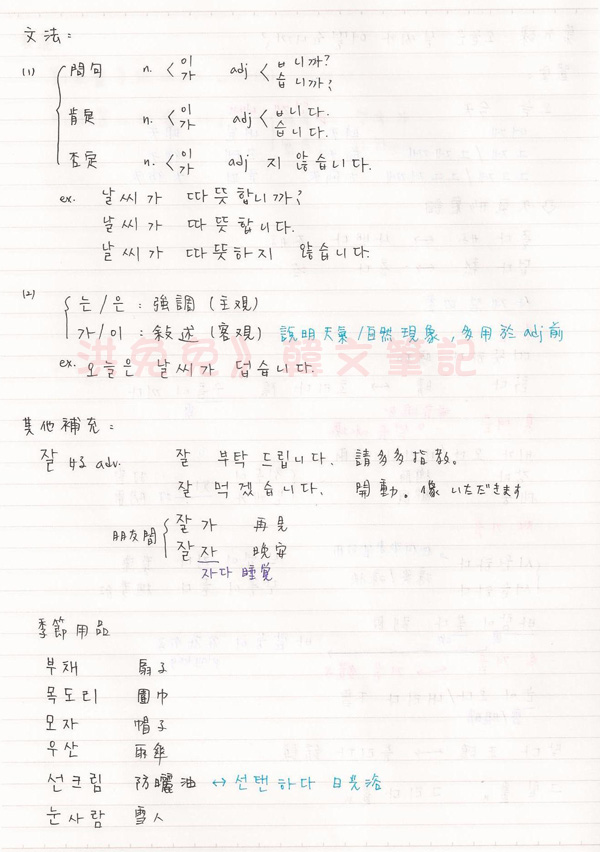 文法：
(1) { 問句 n. < 이 / 가 adj < ㅂ니까? / 습니까?
肯定 n. < 이 / 가 adj < ㅂ니다. / 습니다.
否定 n. < 이 / 가 adj 지 않습니다.
ex. 날씨가 따뜻합니까?
날씨가 따뜻합니다.
날씨가 따뜻하지 않습니다.
(2) { 는/은 : 強調 (主観)
가/이 : 敘述 (客观) 說明天氣/自然現象, 多用於adj前
洪兔兔》韓文筆記
ex. 오늘은 날씨가 덥습니다.
其他補充：
잘 好 adv. 잘 부탁 드립니다. 請多多指教。
잘 먹겠습니다. 開動。像 いただきます
朋友間 { 잘 가 再見
잘 자 晚安
자다 睡覚
季節用品
부채 扇子
목도리 圍巾
모자 帽子
우산 雨傘
선크림 防曬油 ↔ 선탠하다 日光浴
눈사람 雪人